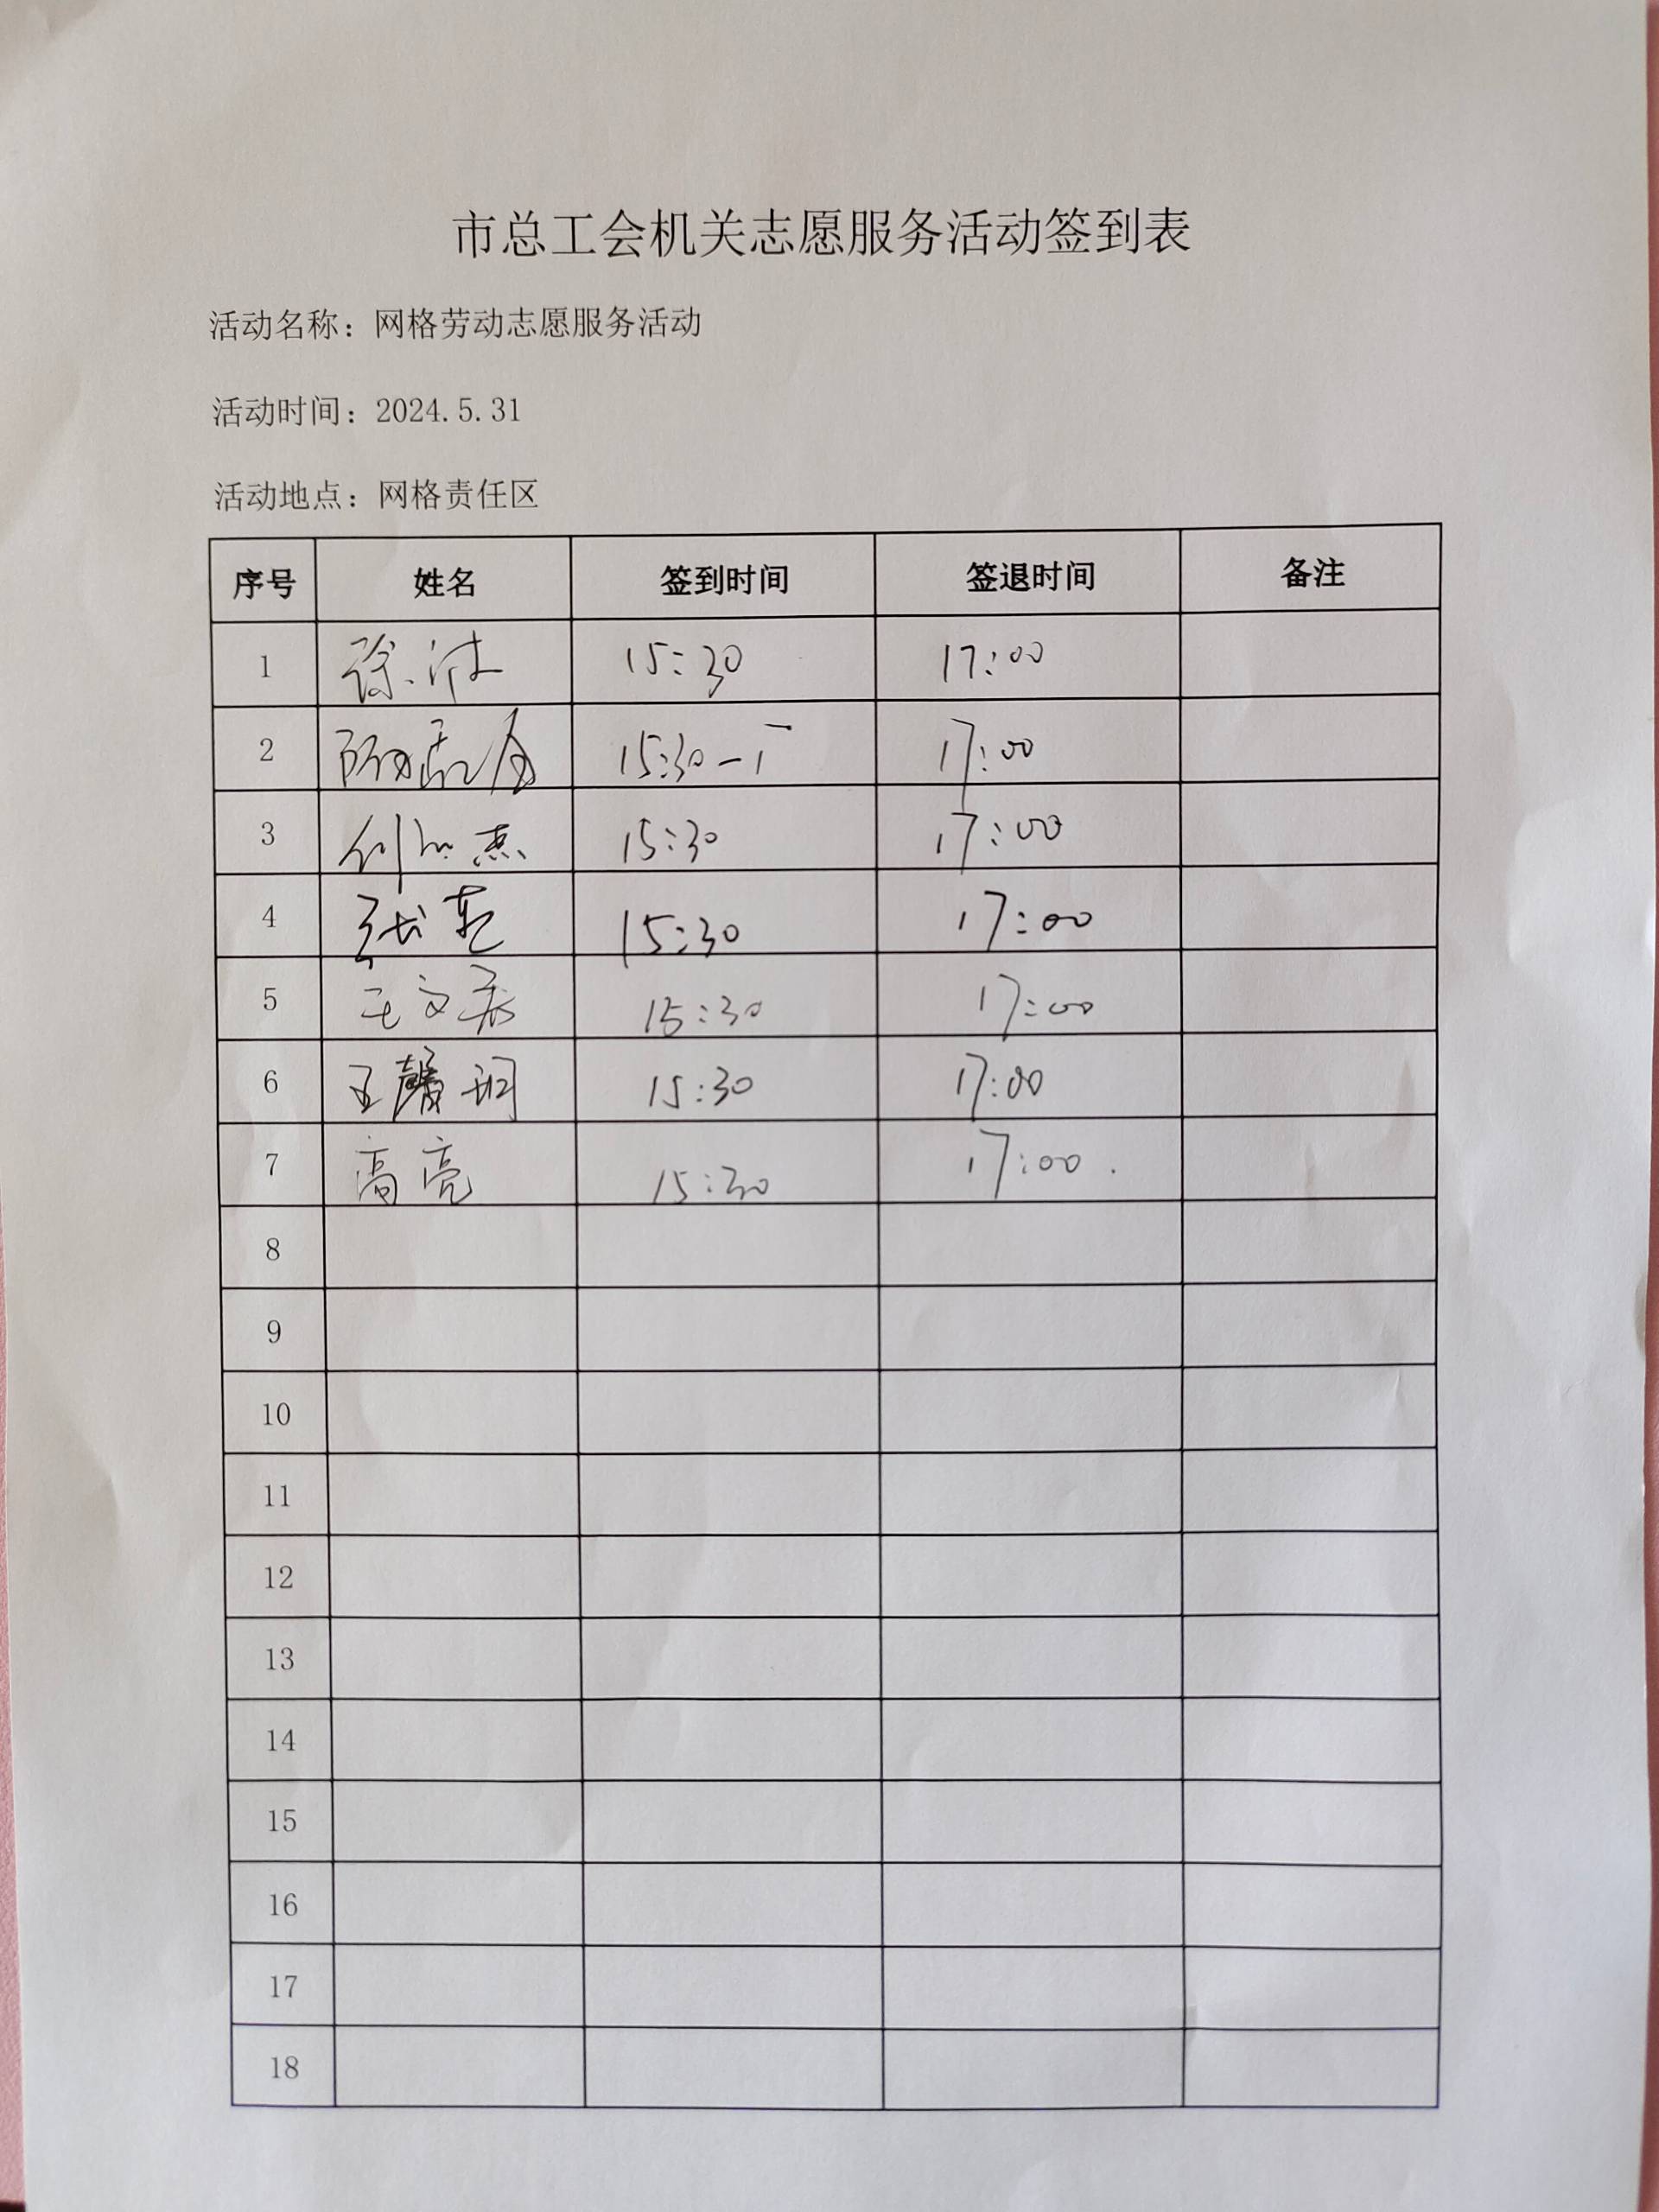 市总工会机关志愿服务活动签到表
活动名称：网格劳动志愿服务活动
活动时间：2024.5.31
活动地点：网格责任区
序号 姓名 签到时间 签退时间 备注
1 徐 15:30 17:00
2 15:30 17:00
3 刘 杰 15:30 17:00
4 张 15:30 17:00
5 王文 15:30 17:00
6 王馨玥 15:30 17:00
7 高亮 15:30 17:00
8
9
10
11
12
13
14
15
16
17
18